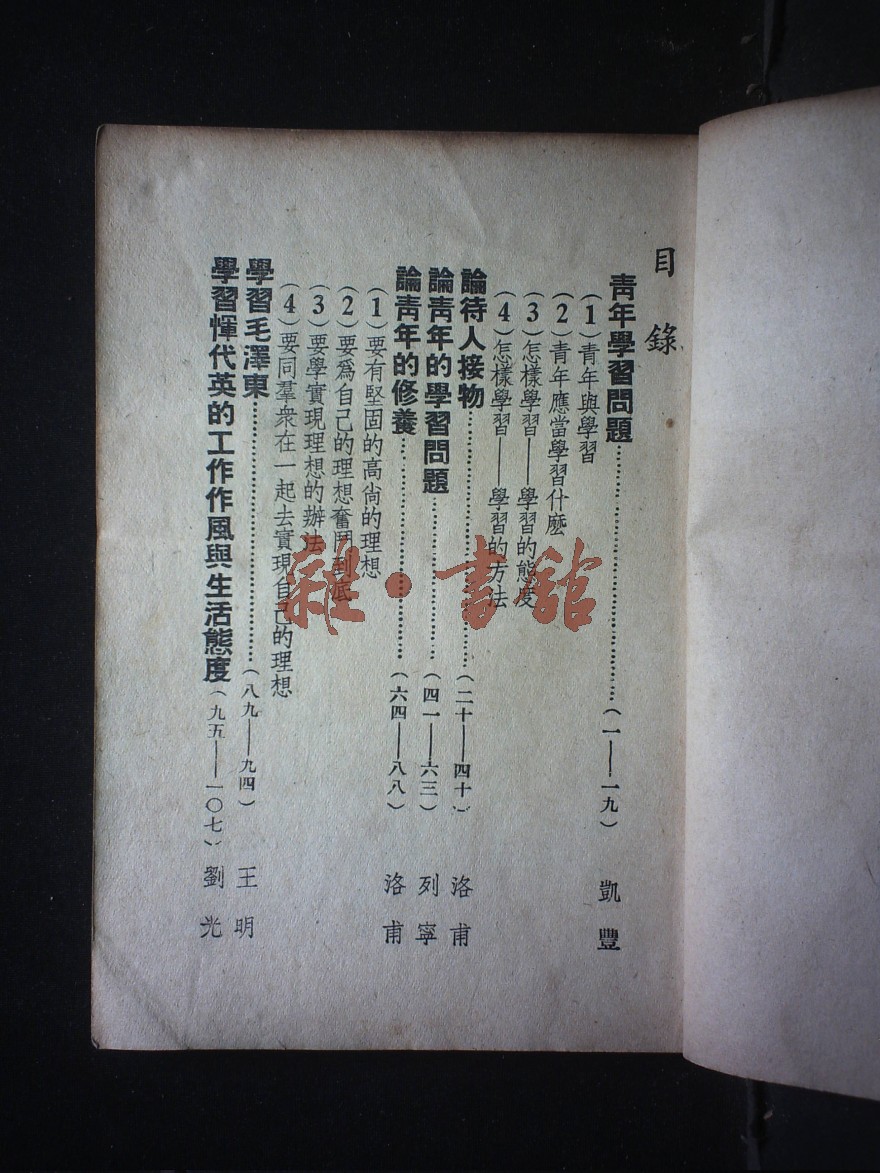 目錄
靑年學習問題……………………(一——一九) 凱豐
(1)靑年與學習
(2)靑年應當學習什麽
(3)怎樣學習——學習的態度
(4)怎樣學習——學習的方法
論待人接物……………………(二十——四十) 洛甫
論靑年的學習問題……………………(四一——六三) 列寧
論靑年的修養……………………(六四——八八) 洛甫
(1)要有堅固的高尙的理想
(2)要爲自己的理想奮鬥到底
(3)要學實現理想的辦法
(4)要同羣衆在一起去實現自己的理想
學習毛澤東……………………(八九——九四) 王明
學習惲代英的工作作風與生活態度(九五——一〇七) 劉光
雜·書館